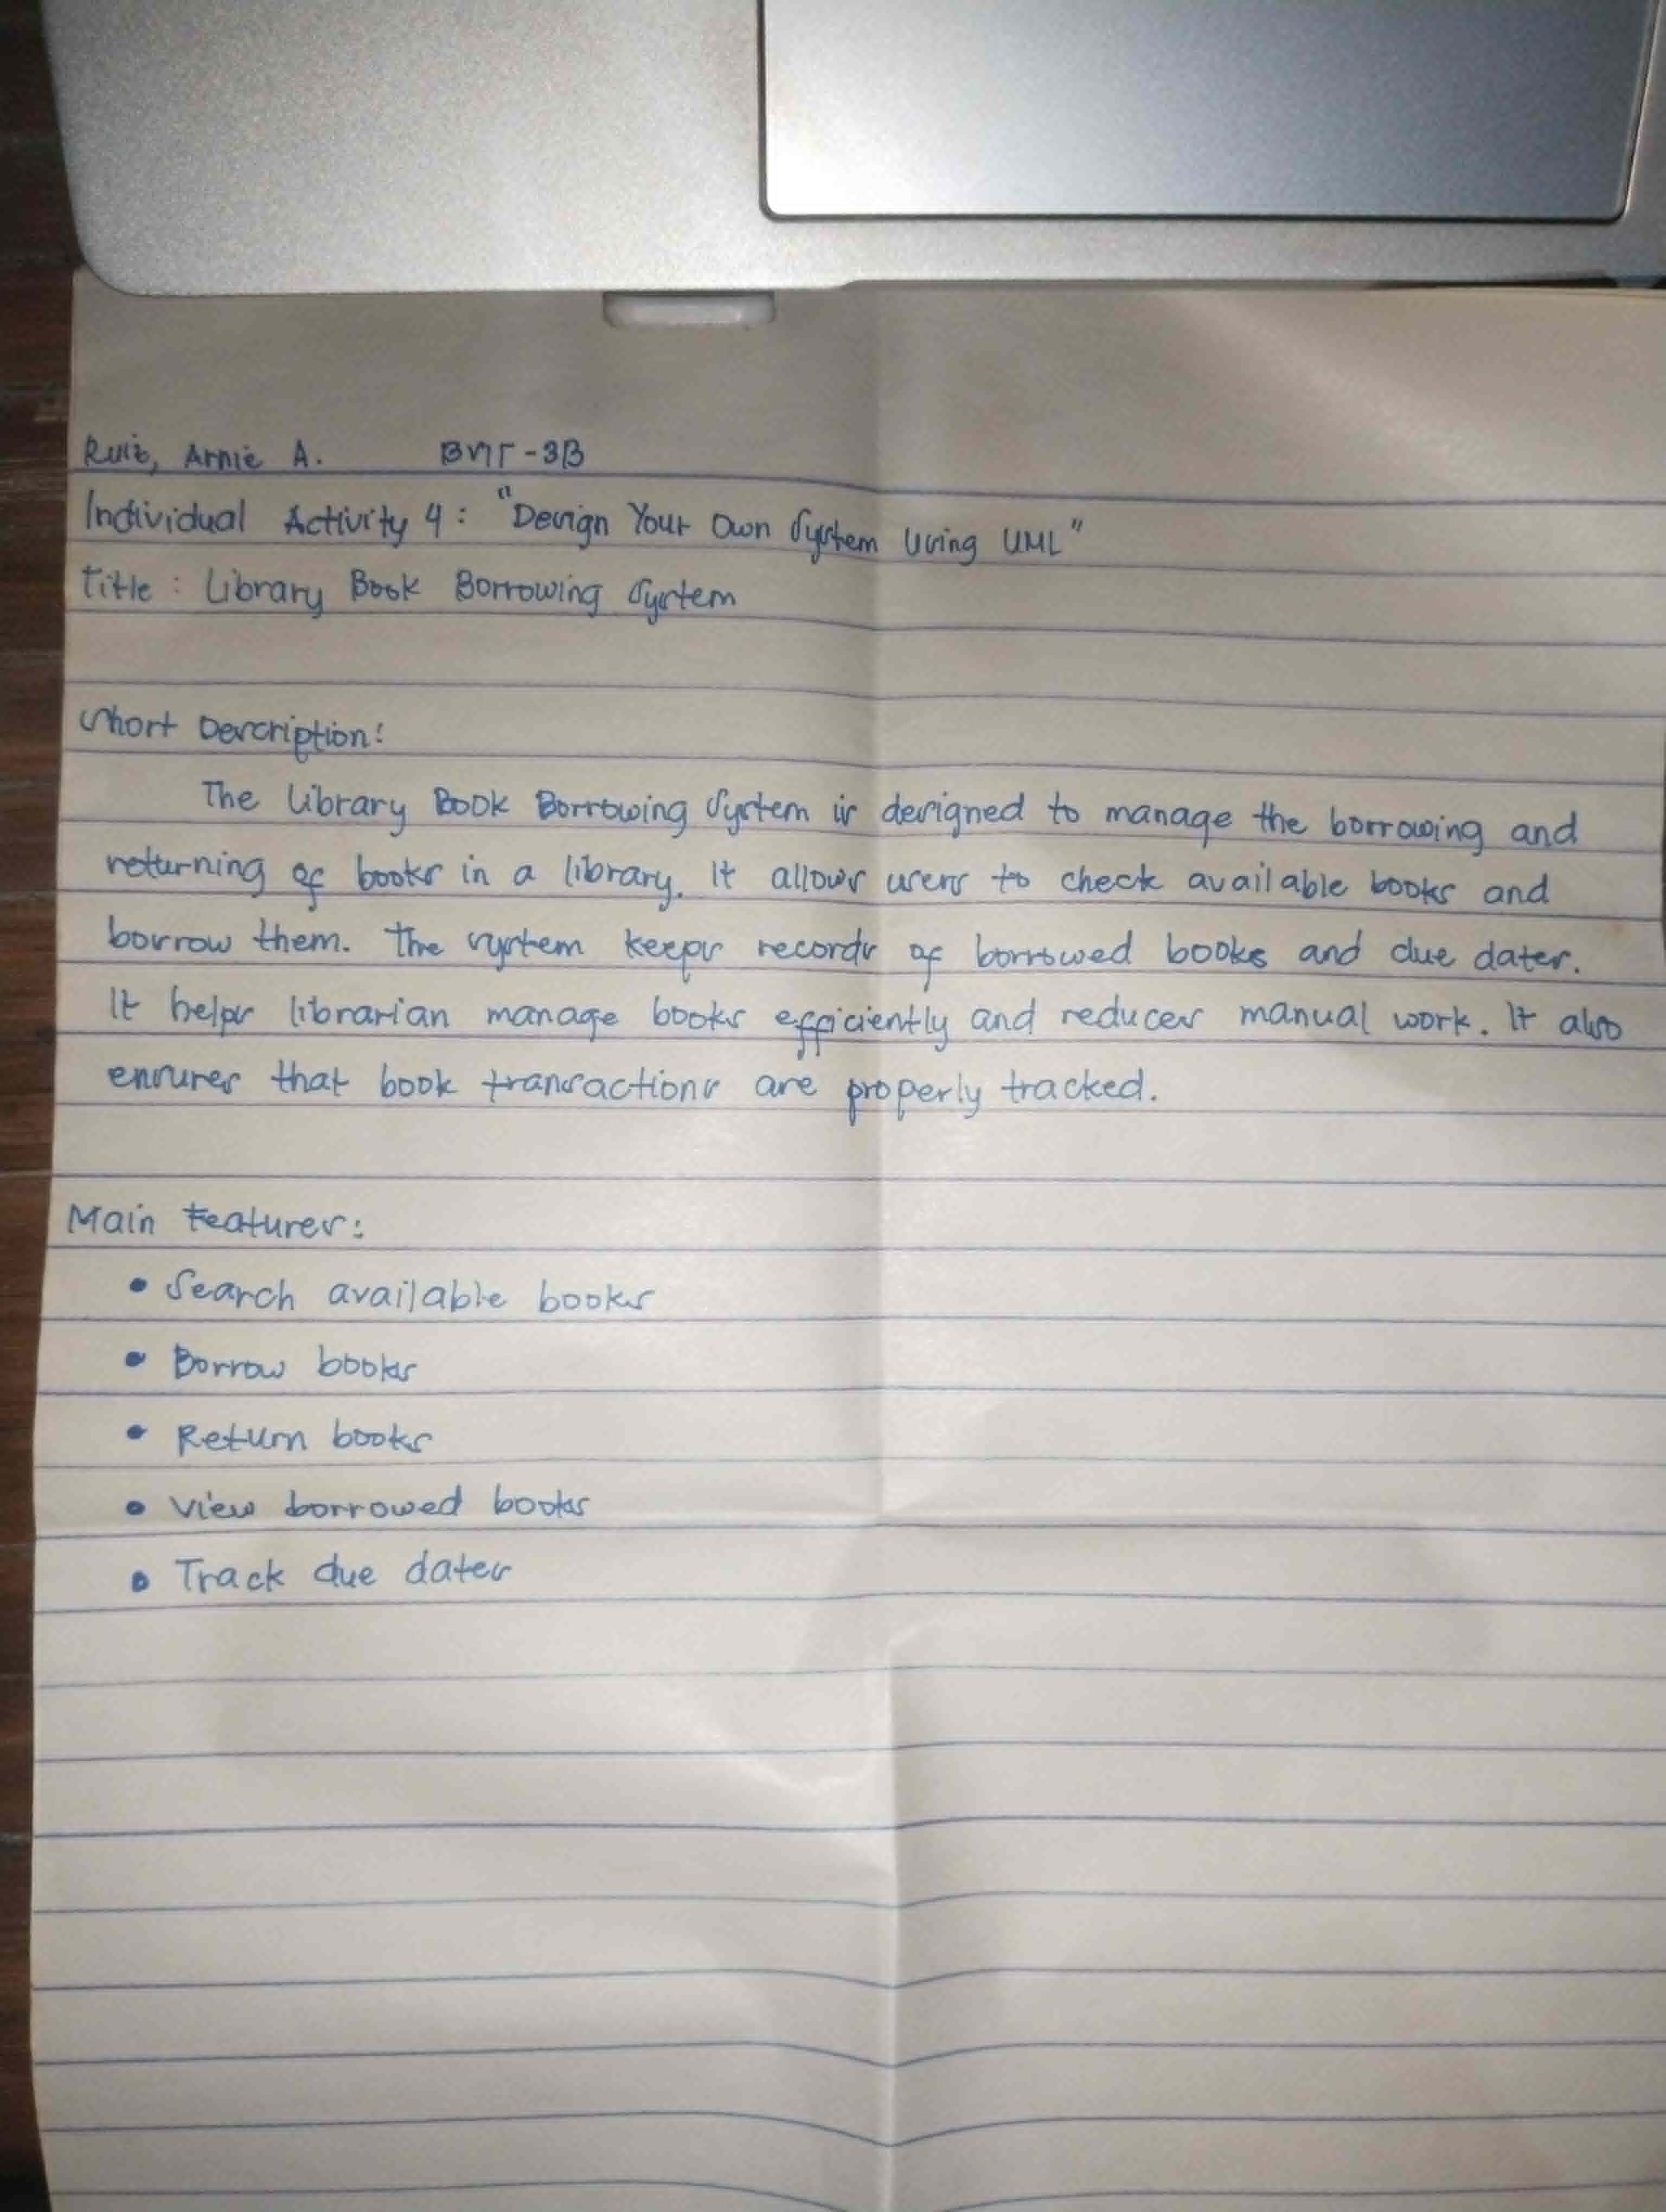 Ruiz, Arnie A. BSIT-3B
Individual Activity 4: "Design Your Own System Using UML"
Title: Library Book Borrowing System
Short Description:
The Library Book Borrowing System is designed to manage the borrowing and
returning of books in a library. It allows users to check available books and
borrow them. The system keeps records of borrowed books and due dates.
It helps librarian manage books efficiently and reduces manual work. It also
ensures that book transactions are properly tracked.
Main Features:
• Search available books
• Borrow books
• Return books
• View borrowed books
• Track due dates